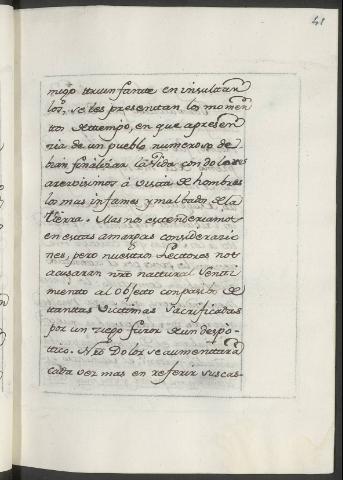 41
migo triunfante en insultar
los, se les presentan los momen
tos de tiempo, en que a presen
cia de un pueblo numeroso de
bian finalizar la vida con dolores
acervisimos á vista de hombres
los mas infames y malbados de la
tierra. Mas no estenderiamos
en estas amargas consideracio
nes, pero nuestros Lectores no
acusaran nro natural senti
miento al objecto conpasibo de
tantas victimas sacrificadas
por un ciego furor de un despo-
tico. Nro Dolor se aumentará
cada vez mas en referir sus cas-